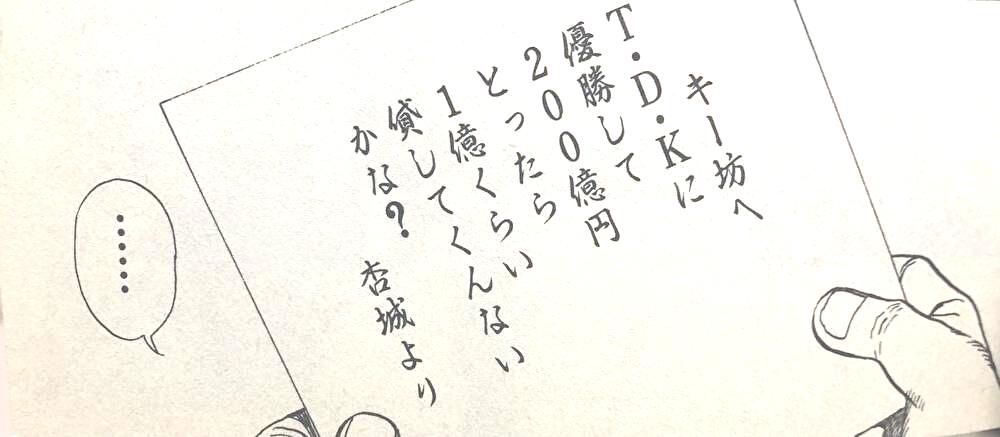 キー坊へ
T・D・Kに
優勝して
200億円
とったら
1億くらい
貸してくんない
かな？ 杏城より
……